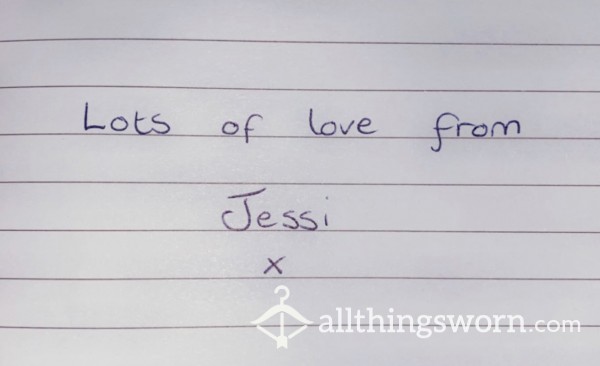 Lots of love from
Jessi
x
allthingsworn.com